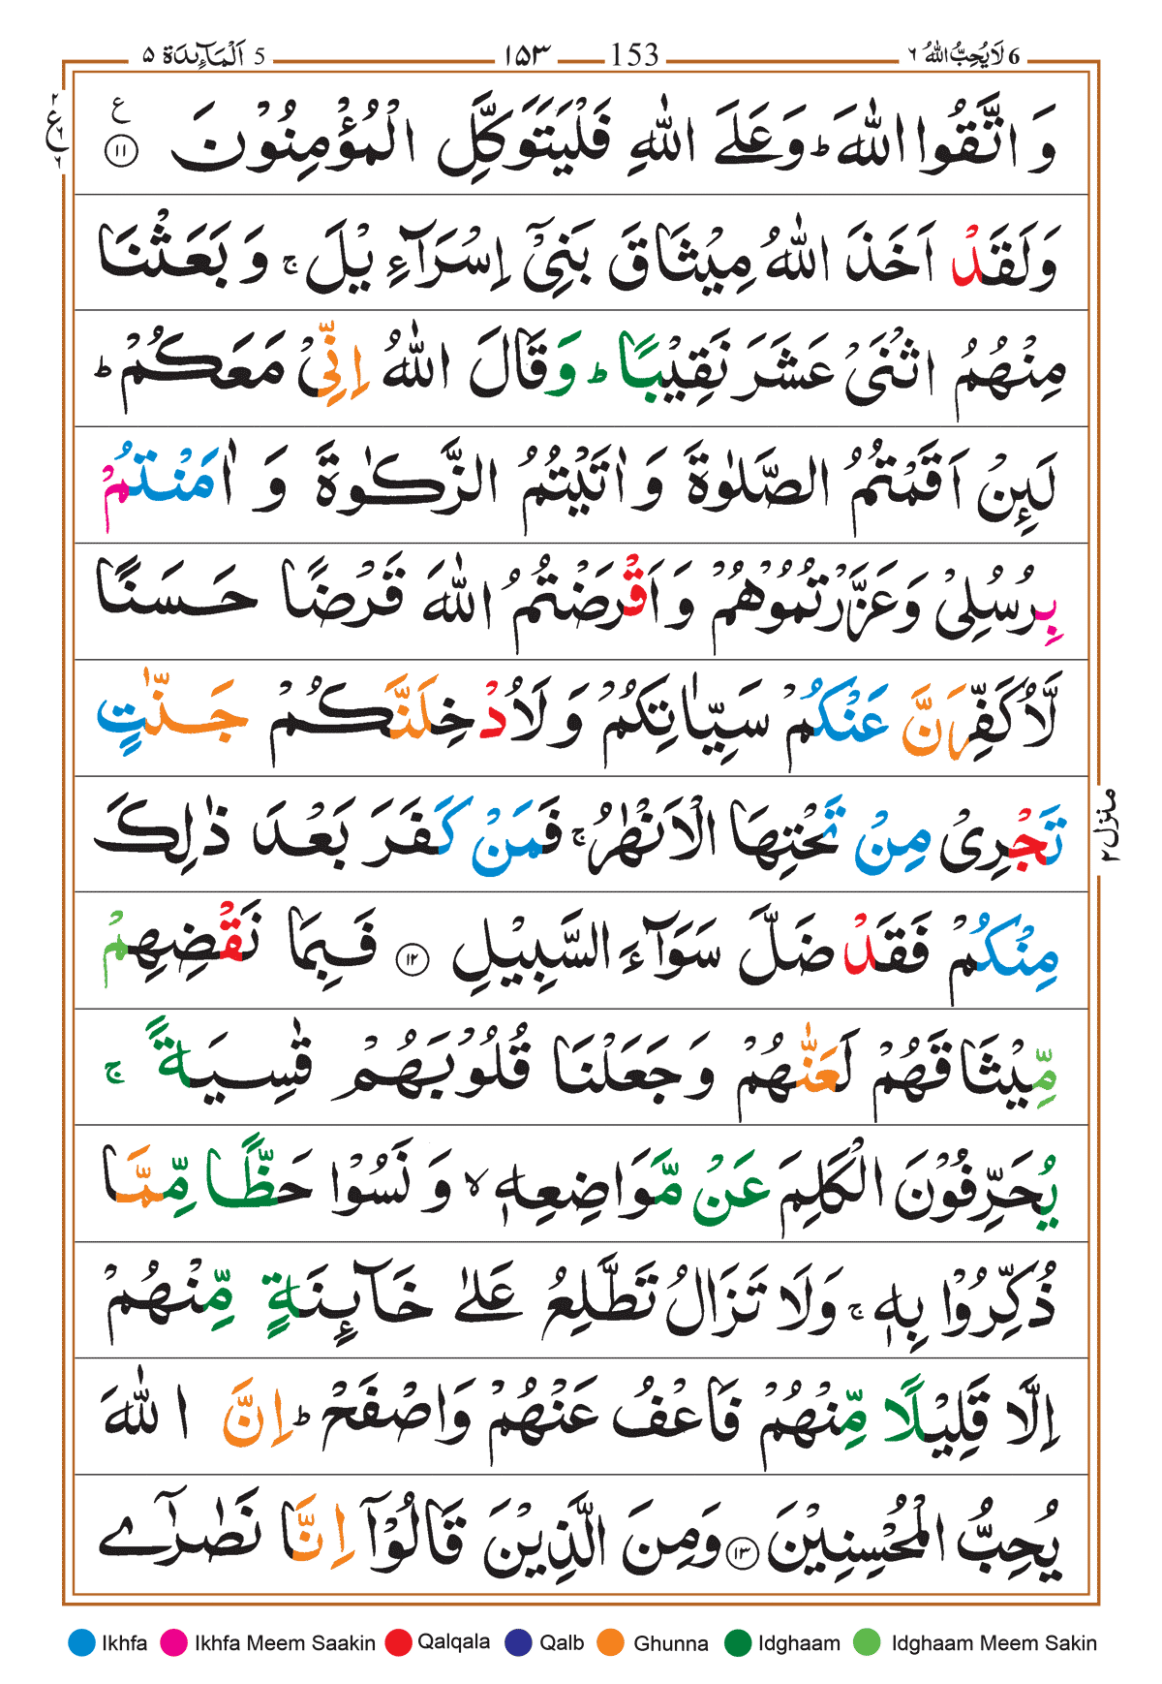 6 لَا یُحِبُّ اللّٰہُ ۶ 153 ۱۵۳ 5 اَلْمَآئِدَة ۵
وَ اتَّقُوا اللّٰهَ ؕ وَ عَلَی اللّٰهِ فَلْیَتَوَكَّلِ الْمُؤْمِنُوْنَ ۱۱ ع
۲ ع ۶ ۶
وَلَقَدْ اَخَذَ اللّٰهُ مِیْثَاقَ بَنِیْۤ اِسْرَآءِیْلَ ۚ وَ بَعَثْنَا
مِنْهُمُ اثْنَیْ عَشَرَ نَقِیْبًا ؕ وَقَالَ اللّٰهُ اِنِّیْ مَعَكُمْ ؕ
لَىِٕنْ اَقَمْتُمُ الصَّلٰوةَ وَ اٰتَیْتُمُ الزَّكٰوةَ وَ اٰمَنْتُمْ
بِرُسُلِیْ وَعَزَّرْتُمُوْهُمْ وَ اَقْرَضْتُمُ اللّٰهَ قَرْضًا حَسَنًا
لَّاُكَفِّرَنَّ عَنْكُمْ سَیِّاٰتِكُمْ وَ لَاُدْخِلَنَّكُمْ جَنّٰتٍ
تَجْرِیْ مِنْ تَحْتِهَا الْاَنْهٰرُ ۚ فَمَنْ كَفَرَ بَعْدَ ذٰلِكَ
مِنْكُمْ فَقَدْ ضَلَّ سَوَآءَ السَّبِیْلِ ۱۲ فَبِمَا نَقْضِهِمْ
مِّیْثَاقَهُمْ لَعَنّٰهُمْ وَ جَعَلْنَا قُلُوْبَهُمْ قٰسِیَةً ۚ
یُحَرِّفُوْنَ الْكَلِمَ عَنْ مَّوَاضِعِهٖ ۙ وَ نَسُوْا حَظًّا مِّمَّا
ذُكِّرُوْا بِهٖ ۚ وَلَا تَزَالُ تَطَّلِعُ عَلٰی خَآىِٕنَةٍ مِّنْهُمْ
اِلَّا قَلِیْلًا مِّنْهُمْ فَاعْفُ عَنْهُمْ وَاصْفَحْ ؕ اِنَّ اللّٰهَ
یُحِبُّ الْمُحْسِنِیْنَ ۱۳ وَمِنَ الَّذِیْنَ قَالُوْۤا اِنَّا نَصٰرٰۤی
منزل ۲
Ikhfa Ikhfa Meem Saakin Qalqala Qalb Ghunna Idghaam Idghaam Meem Sakin